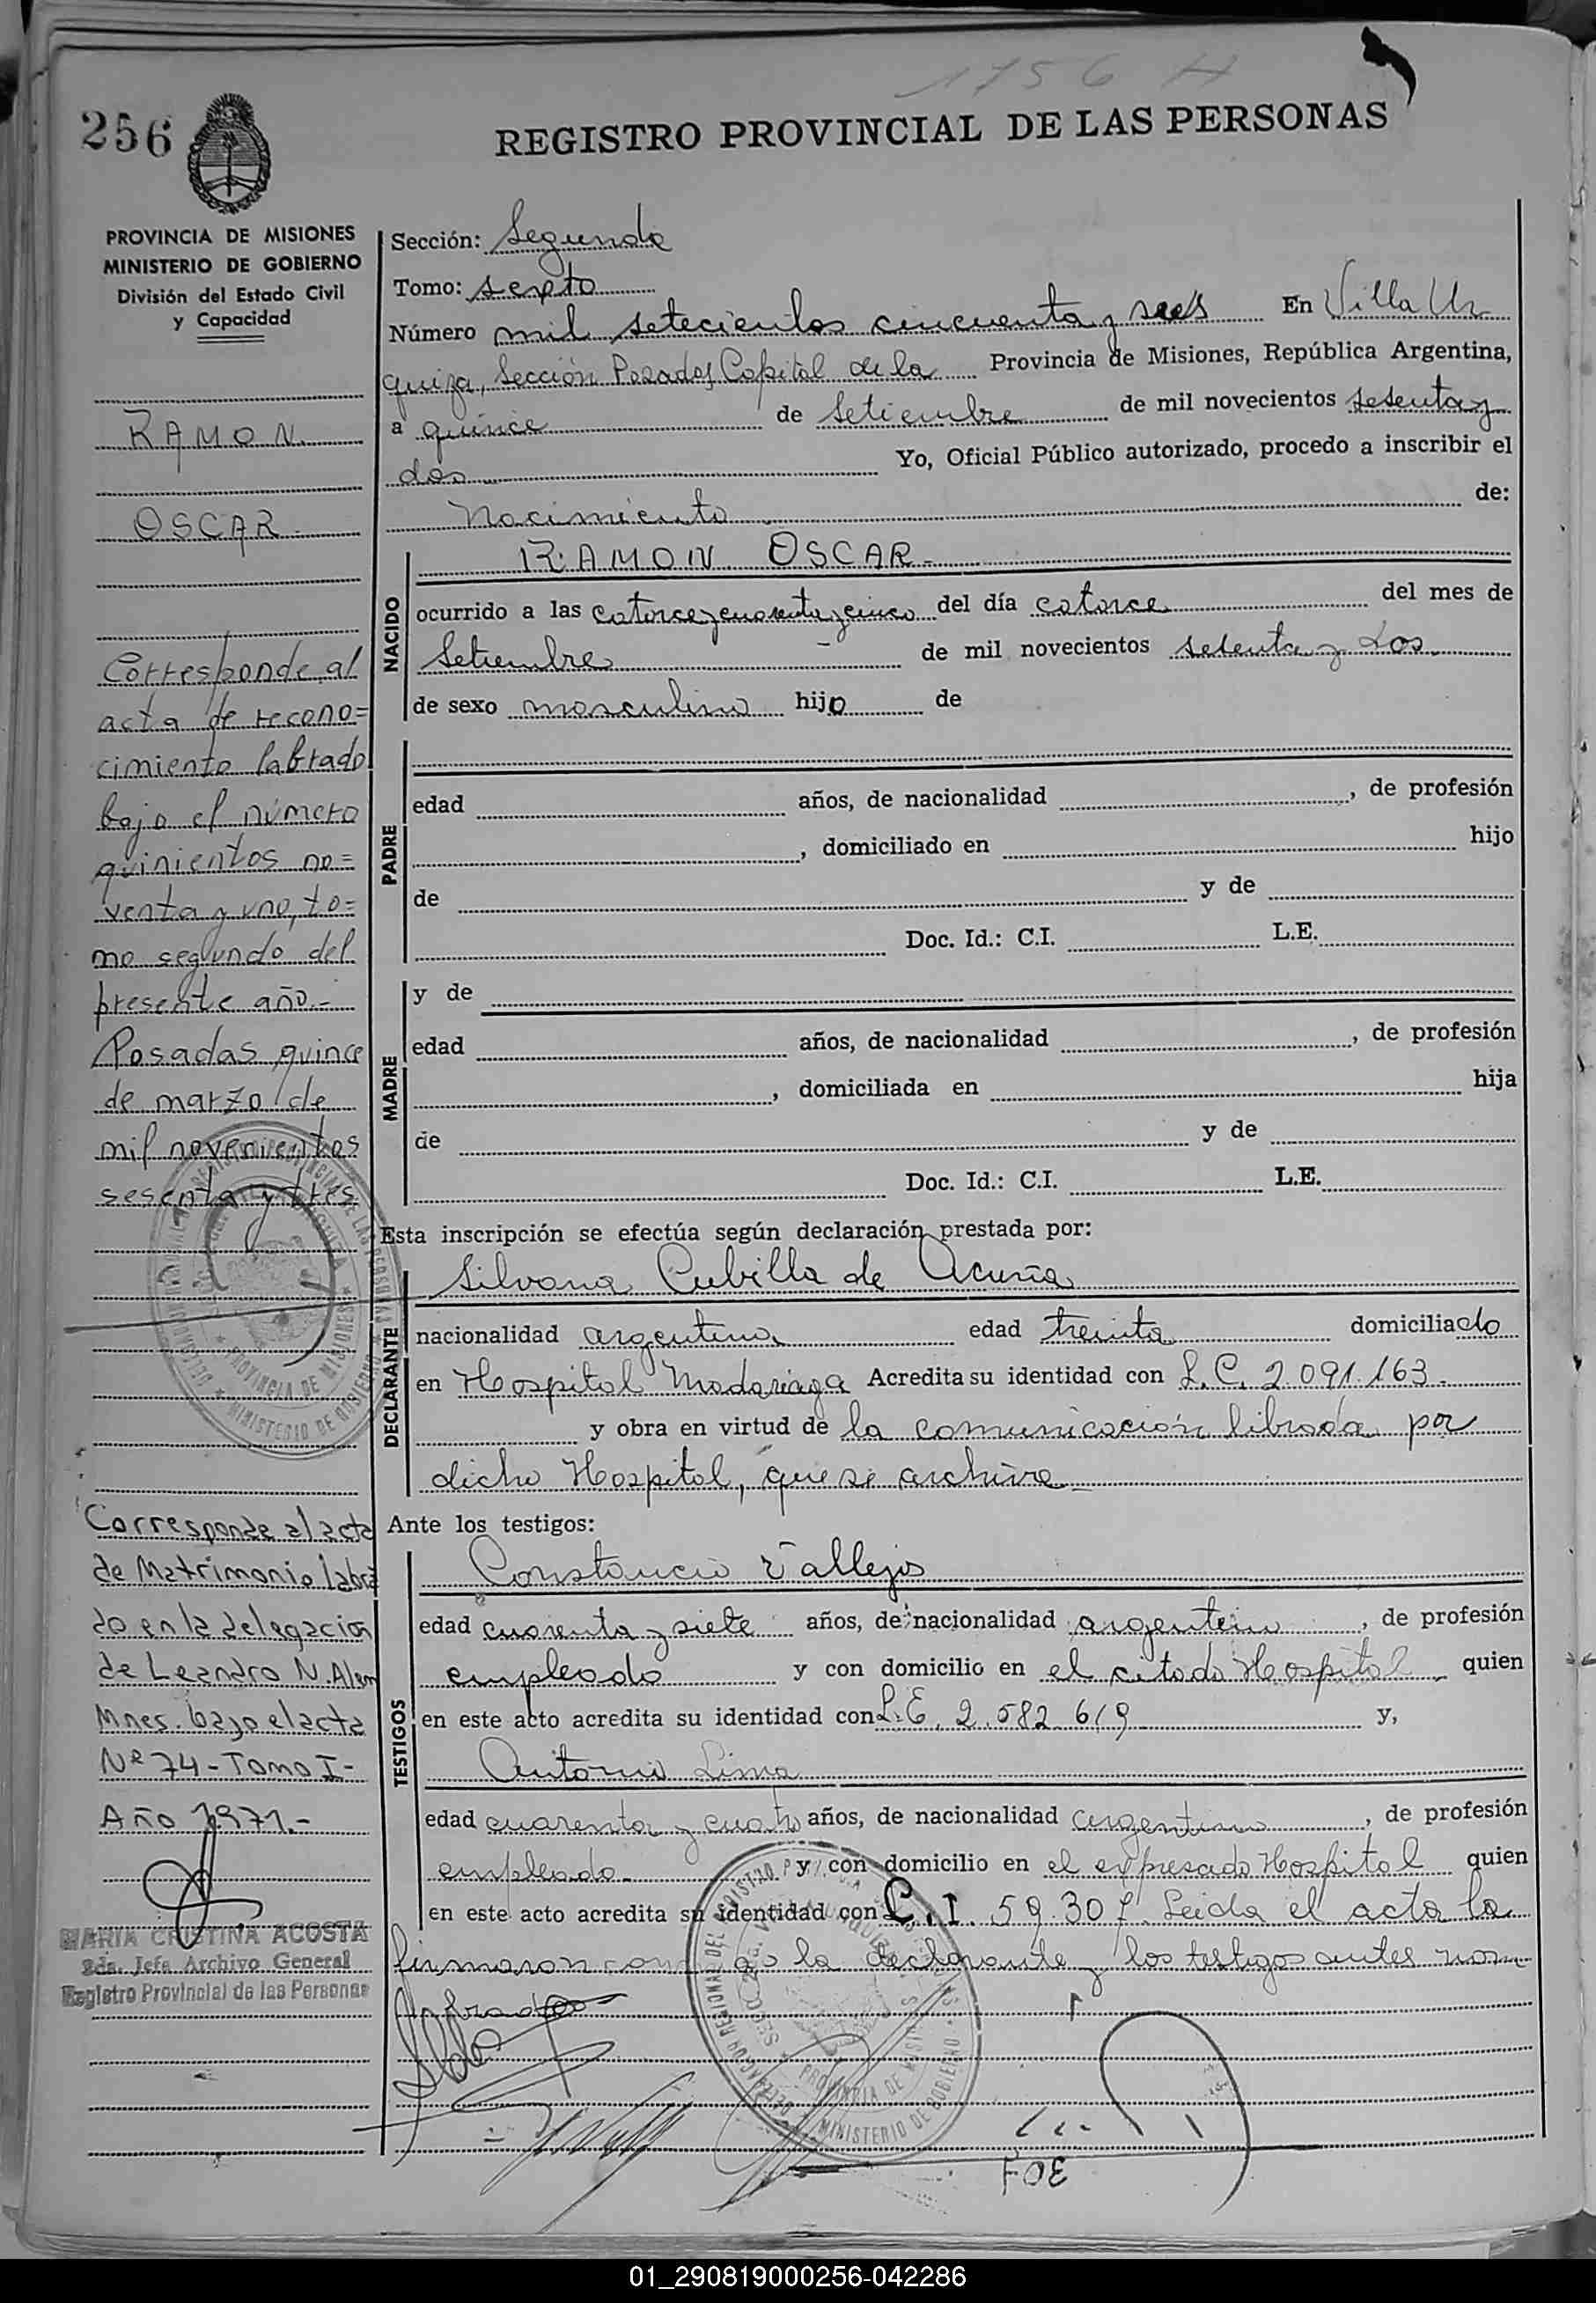 1756 H
256
REGISTRO PROVINCIAL DE LAS PERSONAS
PROVINCIA DE MISIONES
MINISTERIO DE GOBIERNO
División del Estado Civil
y Capacidad
RAMON
OSCAR
Corresponde al
acta de recono=
cimiento labrado
bajo el número
quinientos no=
venta y uno, to=
mo segundo del
presente año.-
Posadas, quince
de marzo de
mil novecientos
sesenta y tres
Corresponde al acta
de Matrimonio labra
do en la delegacion
de Leandro N. Alem
Mnes. bajo el acta
Nº 74 - Tomo I -
Año 1971.-
MARIA CRISTINA ACOSTA
2da. Jefa Archivo General
Registro Provincial de las Personas
Sección: Segunda
Tomo: sexto
Número mil setecientos cincuenta y seis En Villa Ur
quiza, Sección Posadas Capital de la Provincia de Misiones, República Argentina,
a quince de setiembre de mil novecientos setenta y
dos Yo, Oficial Público autorizado, procedo a inscribir el
Nacimiento de:
RAMON OSCAR
NACIDO
ocurrido a las catorce y cuarenta y cinco del día catorce del mes de
Setiembre de mil novecientos setenta y dos
de sexo masculino hijo de
PADRE
edad años, de nacionalidad , de profesión
, domiciliado en hijo
de y de
Doc. Id.: C.I. L.E.
MADRE
y de
edad años, de nacionalidad , de profesión
, domiciliada en hija
de y de
Doc. Id.: C.I. L.E.
Esta inscripción se efectúa según declaración prestada por:
DECLARANTE
Silvana Cubilla de Acuña
nacionalidad argentina edad treinta domiciliado
en Hospital Madariaga Acredita su identidad con L.C. 2.091.163.
y obra en virtud de la comunicación librada por
dicho Hospital, que se archiva
Ante los testigos:
TESTIGOS
Constancio Vallejos
edad cuarenta y siete años, de nacionalidad argentino, de profesión
empleado y con domicilio en el citado Hospital quien
en este acto acredita su identidad con L.E. 2.582.619 y,
Antonio Lima
edad cuarenta y cuatro años, de nacionalidad argentino, de profesión
empleado y con domicilio en el expresado Hospital quien
en este acto acredita su identidad con C.I. 59.307. Leida el acta la
firmaron conmigo la declarante y los testigos antes nom
brados
PROVINCIA DE MISIONES
MINISTERIO DE GOBIERNO
01_290819000256-042286